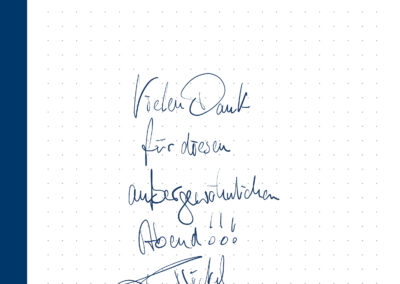 Vielen Dank
für diesen
außergewöhnlichen
Abend!!!